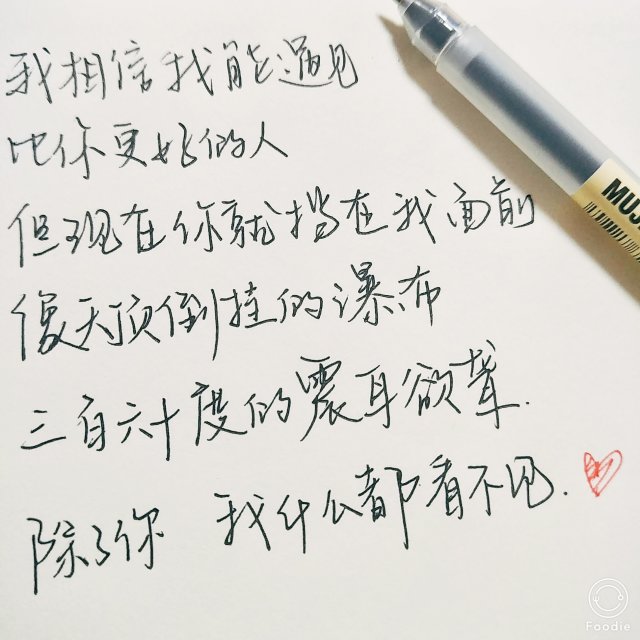 我相信我能遇见
比你更好的人
但现在你就挡在我面前
像天顶倒挂的瀑布
三百六十度的震耳欲聋.
除了你 我什么都看不见.
MUJ
Foodie